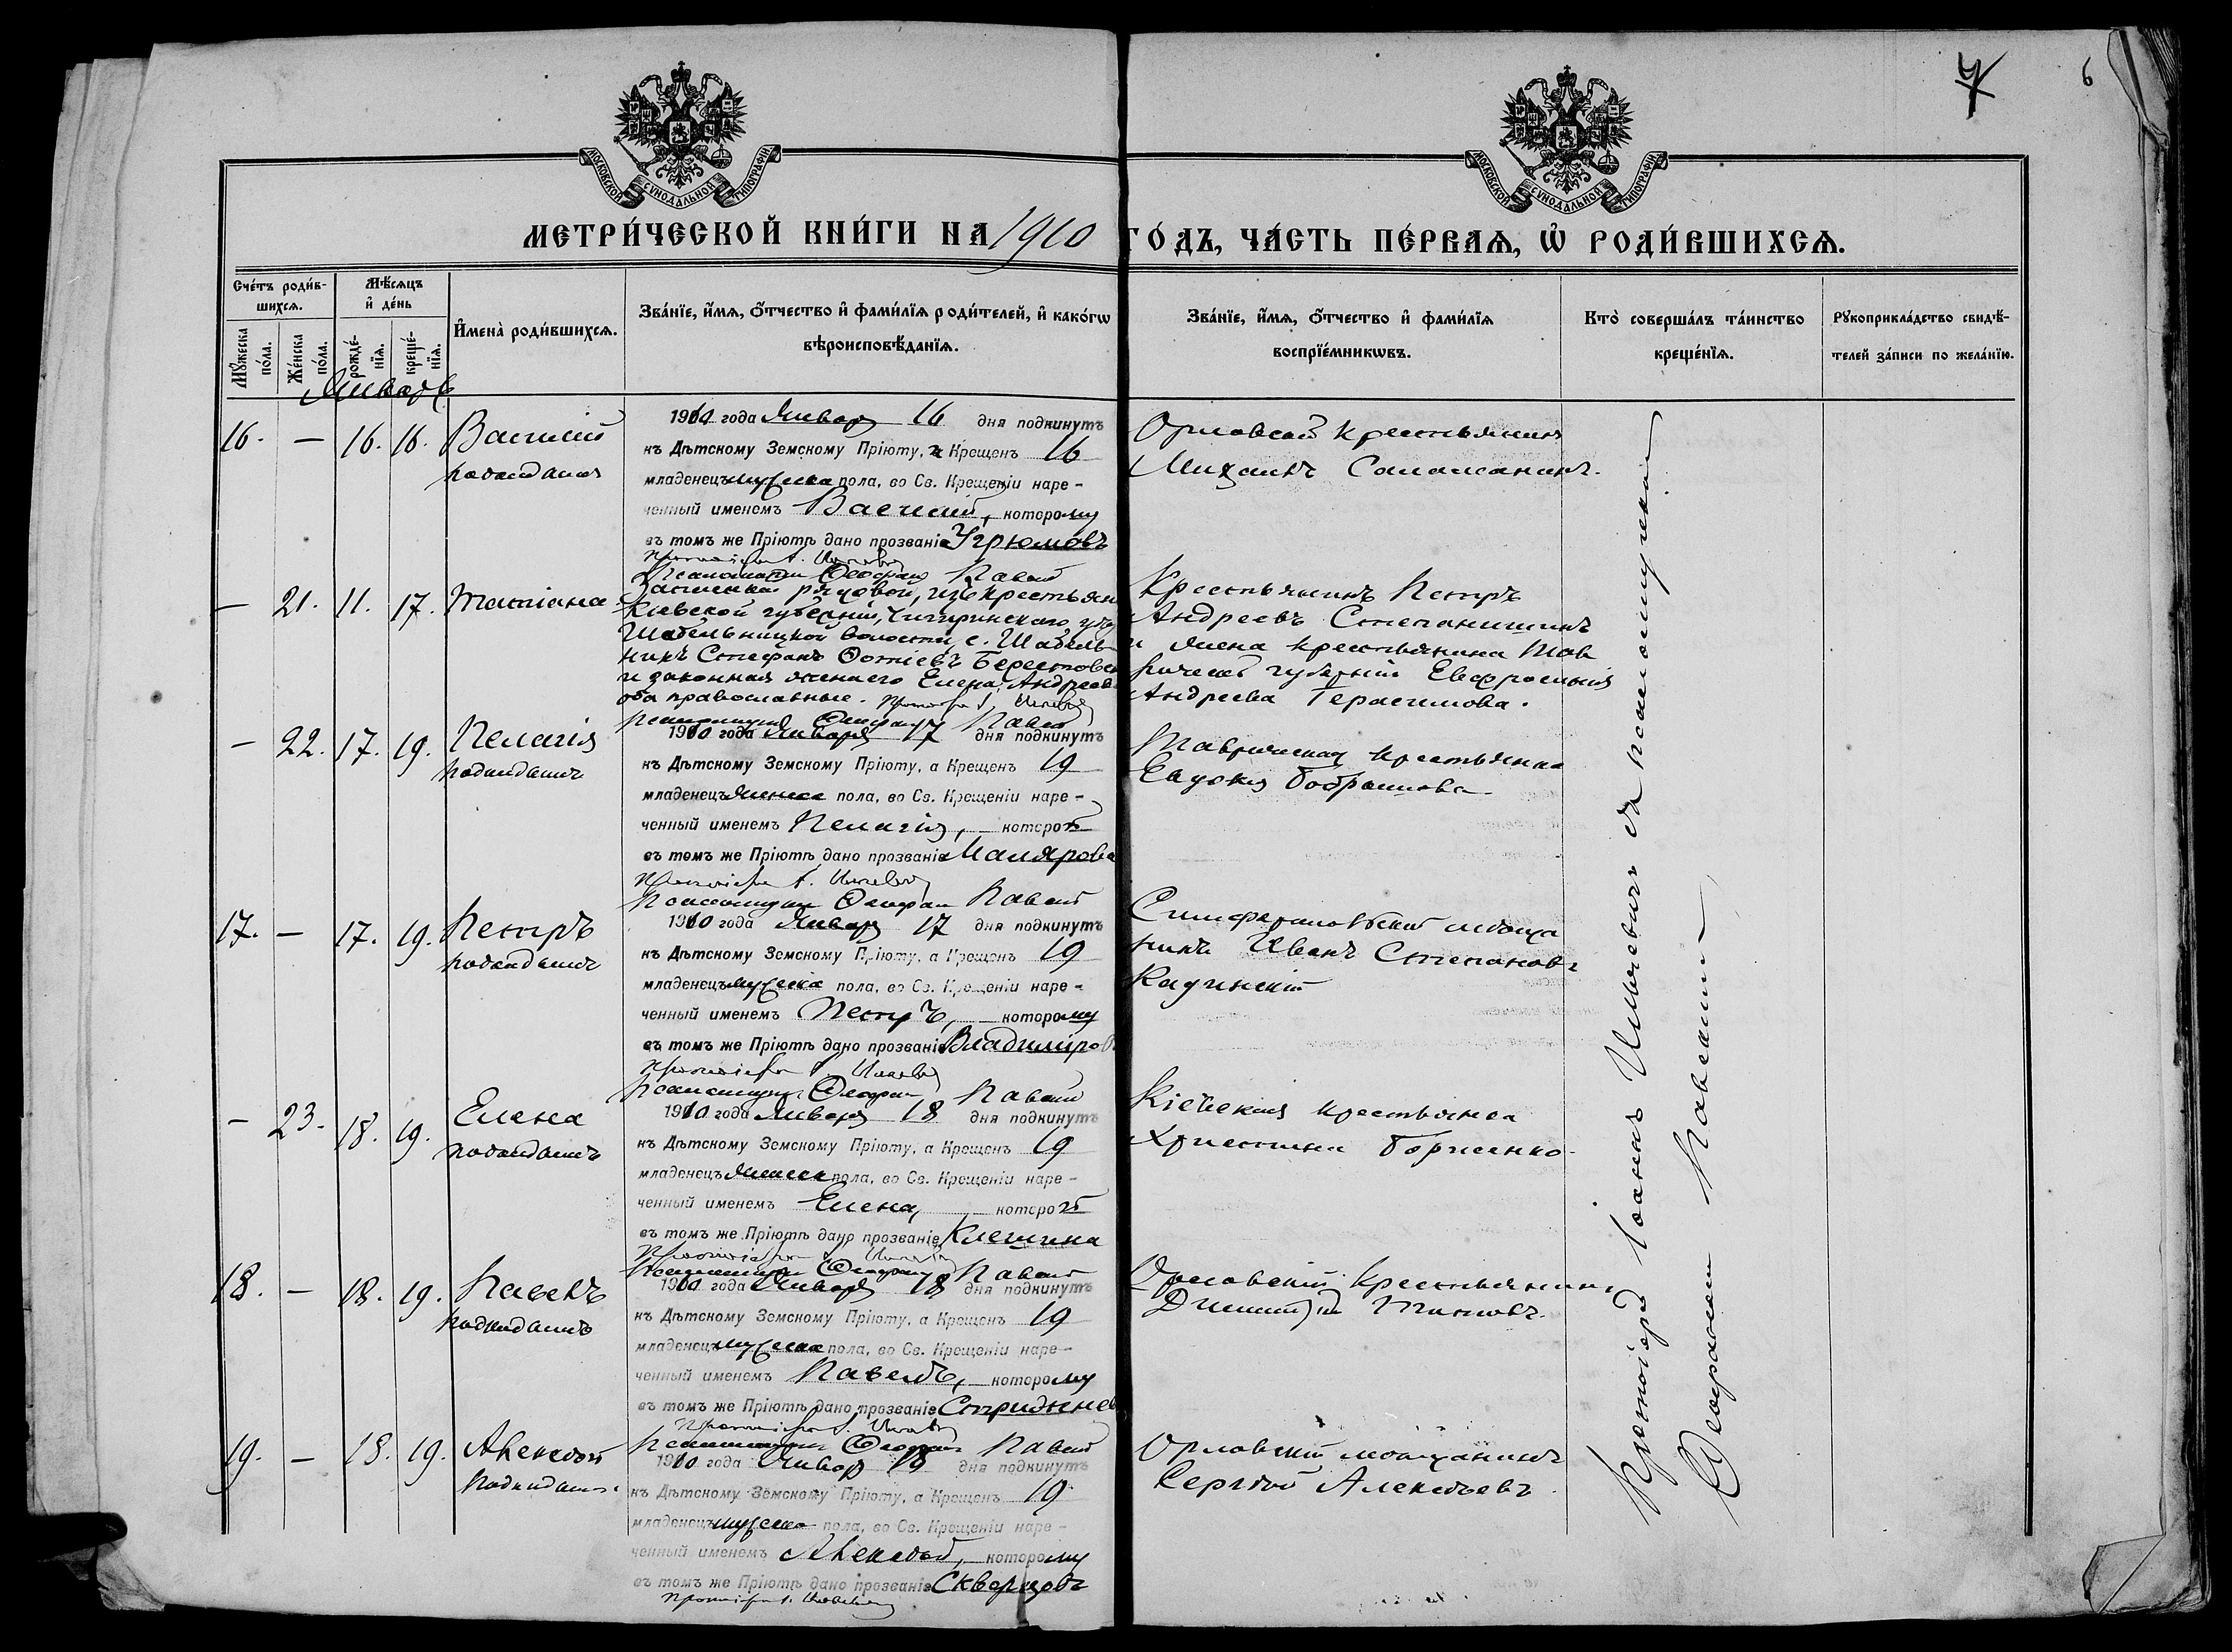 7
6
МОСКОВСКОЙ СѴНОДАЛЬНОЙ ТИПОГРАФІИ
МОСКОВСКОЙ СѴНОДАЛЬНОЙ ТИПОГРАФІИ
МЕТРИ́ЧЕСКОЙ КНИ́ГИ НА 1910 ГО́ДЪ, ЧА́СТЬ ПЕ́РВАѦ, Ѽ РОДИ́ВШИХСѦ.
Сче́тъ роди́в-
шихсѧ.
Мꙋ́жеска по́ла.
Же́нска по́ла.
Мѣ́сѧцъ
и҆ де́нь
рожде́-нїѧ.
креще́-нїѧ.
И҆мена̀ роди́вшихсѧ.
Зва́нїе, и҆́мѧ, ѻ҆́тчество и҆ фами́лїѧ роди́телей, и҆ како́гѡ
вѣроисповѣ́данїѧ.
Зва́нїе, и҆́мѧ, ѻ҆́тчество и҆ фами́лїѧ
воспрїе́мникѡвъ.
Кто̀ соверша́лъ та́инство
креще́нїѧ.
Рꙋкоприкла́дство свидѣ́-
телей за́писи по жела́нїю.
Январь
16. — 16. 16. Василій
подкидышъ
1910 года Января 16 дня подкинутъ
къ Дѣтскому Земскому Пріюту, а Крещенъ 16
младенецъ мужеска пола, во Св. Крещеніи наре-
ченный именемъ Василій, которому
въ томъ же Пріютѣ дано прозваніе Угрюмовъ
Псаломщикъ Ѳеофанъ
Орловскій крестьянинъ
Михаилъ
— 21. 11. 17. Татіана
Запасной рядовой, изъ крестьян
Кіевской губерніи, Чигиринскаго уѣз
Шабельницкой волости, с. Шабель
никъ Стефанъ Фотіевъ Берестовск
и законная жена его Елена Андреев
оба православные.
Псаломщикъ Ѳеофанъ
Крестьянинъ Петръ
Андреевъ
и жена крестьянина Тав
рической губерніи Евфросинія
Андреева Герасимова.
— 22. 17. 19. Пелагія
подкидышъ
1910 года Января 17 дня подкинутъ
къ Дѣтскому Земскому Пріюту, а Крещенъ 19
младенецъ женска пола, во Св. Крещеніи наре-
ченный именемъ Пелагія, которой
въ томъ же Пріютѣ дано прозваніе Малярова
Псаломщикъ Ѳеофанъ
Таврическая крестьянка
Евдокія
17. — 17. 19. Петръ
подкидышъ
1910 года Января 17 дня подкинутъ
къ Дѣтскому Земскому Пріюту, а Крещенъ 19
младенецъ мужеска пола, во Св. Крещеніи наре-
ченный именемъ Петръ, которому
въ томъ же Пріютѣ дано прозваніе Владиміров
Псаломщикъ Ѳеофанъ
Симферопольскій мѣща
нинъ Иванъ Степановъ
— 23. 18. 19. Елена
подкидышъ
1910 года Января 18 дня подкинутъ
къ Дѣтскому Земскому Пріюту, а Крещенъ 19
младенецъ женска пола, во Св. Крещеніи наре-
ченный именемъ Елена, которой
въ томъ же Пріютѣ дано прозваніе Клешина
Псаломщикъ Ѳеофанъ
Кіевская крестьянка
Христина Борисенко.
18. — 18. 19. Павелъ
подкидышъ
1910 года Января 18 дня подкинутъ
къ Дѣтскому Земскому Пріюту, а Крещенъ 19
младенецъ мужеска пола, во Св. Крещеніи наре-
ченный именемъ Павелъ, которому
въ томъ же Пріютѣ дано прозваніе
Псаломщикъ Ѳеофанъ
Орловскій крестьянинъ
Димитрій Титовъ.
19. — 18. 19. Алексѣй
подкидышъ
1910 года Января 18 дня подкинутъ
къ Дѣтскому Земскому Пріюту, а Крещенъ 19
младенецъ мужеска пола, во Св. Крещеніи наре-
ченный именемъ Алексѣй, которому
въ томъ же Пріютѣ дано прозваніе Скворцовъ
Орловскій мѣщанинъ
Сергѣй Алексѣевъ.
Протоіерей Іоаннъ съ псаломщикомъ
Ѳеофаномъ